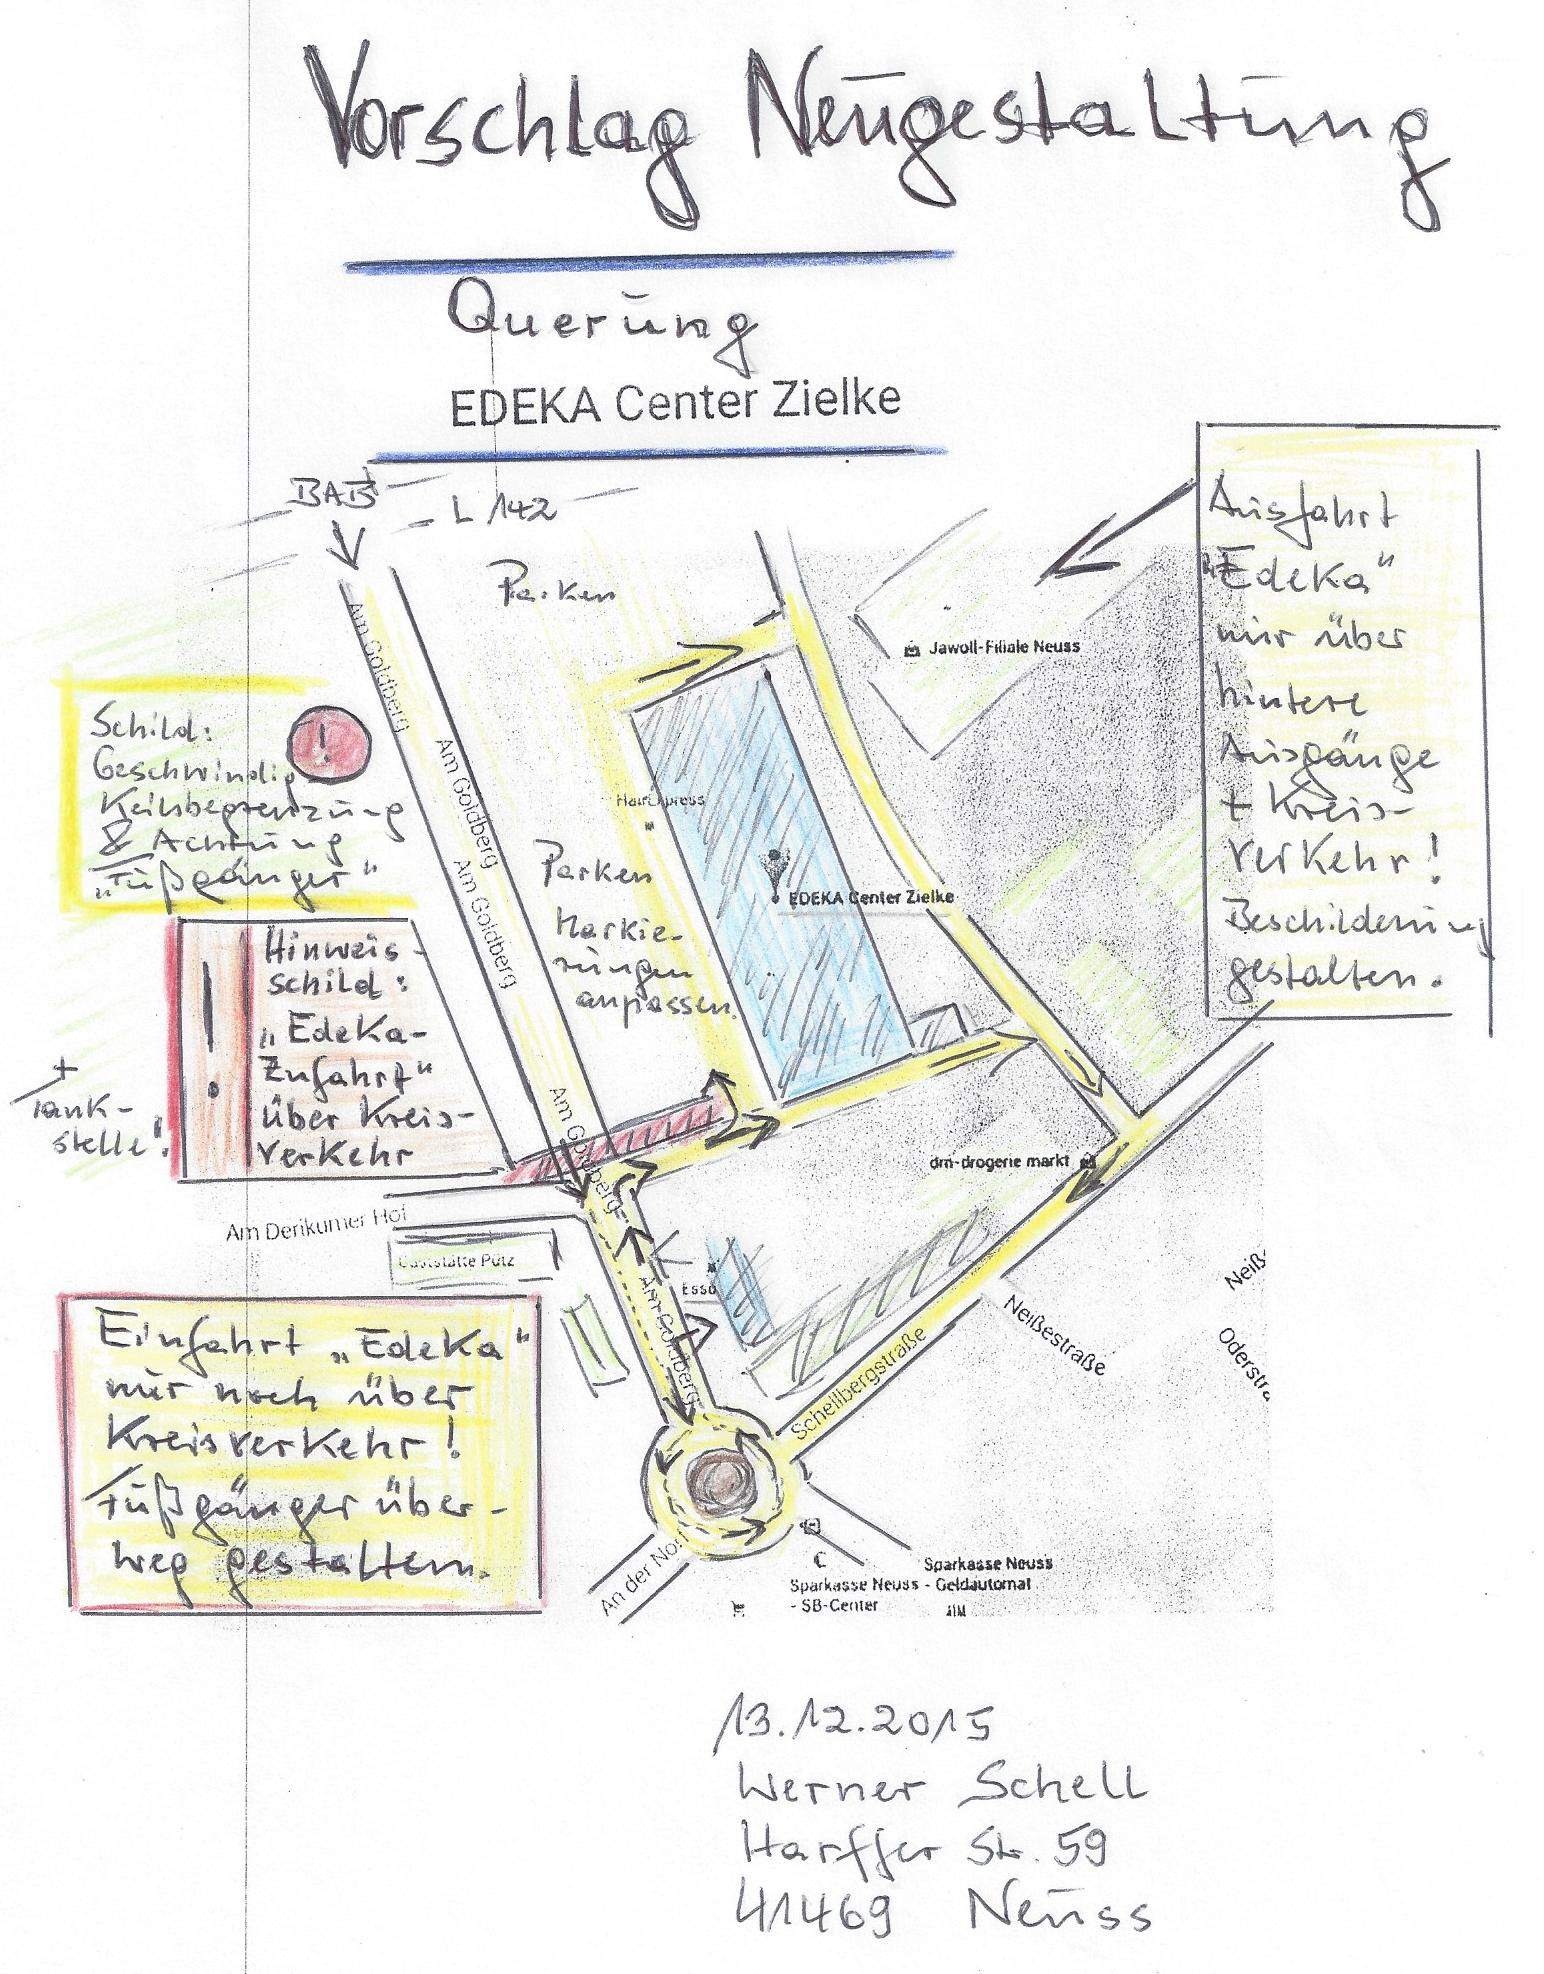 Vorschlag Neugestaltung
Querung
EDEKA Center Zielke
BAB
L 142
Parken
Ausfahrt
"Edeka"
nur über
hintere
Ausgänge
+ Kreis-
verkehr!
Beschilderung
gestalten.
Am Goldberg
Jawoll-Filiale Neuss
Schild:
Geschwindig
keitsbegrenzung
& Achtung
„Fußgänger"
!
Am Goldberg
HairExpress
Am Goldberg
Parken
Markie-
rungen
anpassen.
EDEKA Center Zielke
!
Hinweis-
schild:
„Edeka-
Zufahrt"
über Kreis-
verkehr
+
Tank-
stelle!
Am Goldberg
dm-drogerie markt
Am Derikumer Hof
Gaststätte Pütz
Esso
Am Goldberg
Neißestraße
Schellbergstraße
Einfahrt „Edeka"
nur noch über
Kreisverkehr!
Fußgänger über-
weg gestalten.
An der
Sparkasse Neuss
Sparkasse Neuss - Geldautomat
- SB-Center
13.12.2015
Werner Schell
Harffer Str. 59
41469 Neuss